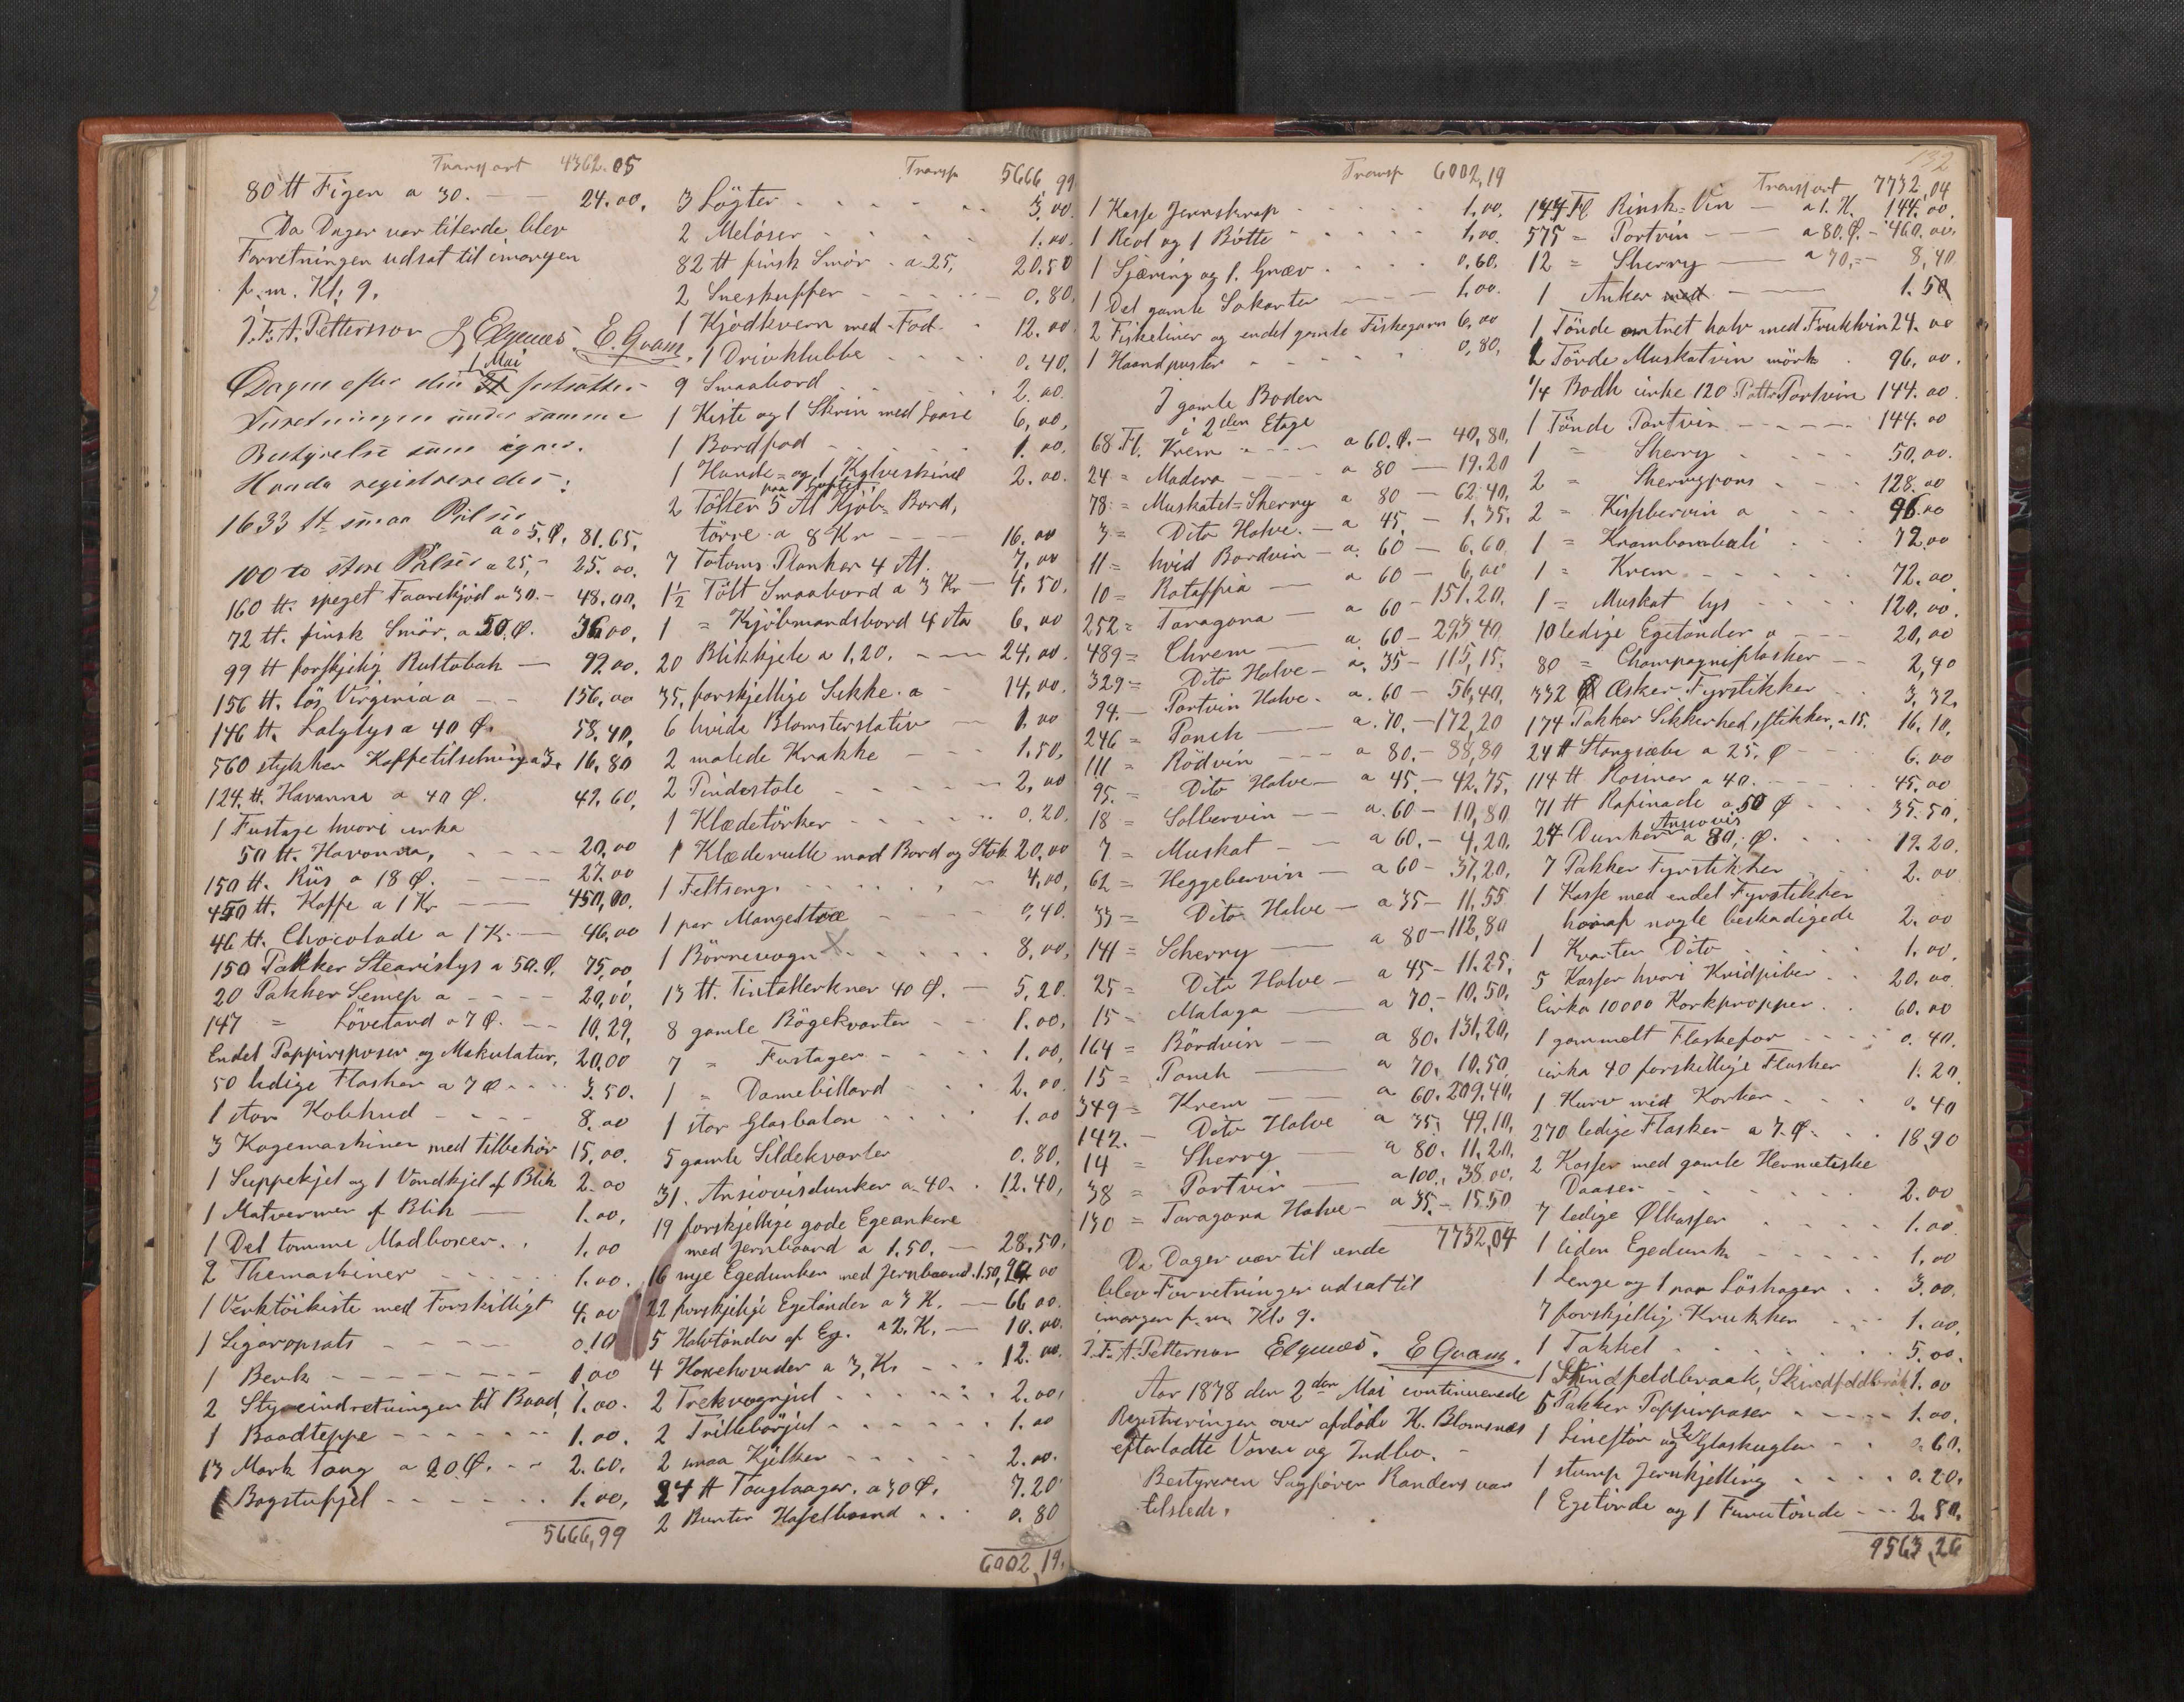 Transport 4362.05
80 tt Figen a 30. - - 24.00.
Da Dagen var tilende blev
Forretningen udsat til imorgen
f.m. Kl. 9.
J.F.A. Pettersson Elgenæs. E. Qvam.
1 Mai
Dagen efter den fortsattes
Forretningen under samme
Bestyrelse som igaar.
Haada registreredes:
1633 tt smaa Pølser
a 05. Ø. 81.65.
100 to store Pølser a 25,- 25.00.
160 tt. speget Faarekjød a 30.- 48.00.
72 tt. finsk Smör. a 50. Ø. 36.00.
99 tt forskjelig Rultobak - 99.00.
156 tt. lös Virginia a - - 156,00
146 tt. Lalglys a 40 Ø. 58.40.
560 stykker Kaffetilsetning a 3. 16.80
124. tt. Havanna a 40 Ø. 49.60.
1 Fustage hvori cirka
50 tt. Havanna, - - - 20,00
150 tt. Riis a 18 Ø. - - - 27.00
450 tt. Kaffe a 1 Kr - - 450,00.
46 tt. Chocolade a 1 K. - 46,00
150 Pakker Stearinlys a 50. Ø. 75,00
20 Pakker Semep a - - - 20,00.
147 = Lövetand a 7 Ø. - - 10.29,
Endel Pappirsposer og Makulatur. 20.00
50 ledige Flasker a 7 Ø - - - 3.50.
1 stor Kobhud - - - - 8.00
3 Kogemaskiner med tilbehör 15,00.
1 Suppekjel og 1 Vandkjel af Blik 2.00
1 Matvarmer af Blik - 1.00,
1 Del tomme Madboxer. . 1.00
2 Themaskiner - - - - 1.00.
1 Verktöikiste med Forskilligt 4.00
1 Sigaropsats - - - - 0.10
1 Benk - - - - - - 1,00
2 Styreindretninger til Baad 1.00.
1 Baadteppe - - - - - - 1.00.
13 Mark Taug a 20 Ø. - - 2.60.
1 Bogstufjel - - - - - - 1.00,
5666,99
Transp 5666,99
3 Lögter - - - - - - 3.00.
2 Meloser - - - - - 1.00.
82 tt finsk Smör - a 25, 20.50
2 Sneskuffer - - - - 0.80.
1 Kjödkvern med Fod - 12.00
1 Drivklubbe - - - - 0.40,
9 Smaabord - - - - 2.00.
1 Kiste og 1 Skrin med Laase 6,00,
1 Bordfod - - - - - 1.00.
1 Hunde= og 1 Kalveskind 2.00.
2 Tölter 5 Al Kjöb= Bord,
törre a 8 Kr - - - 16.00
7 Totoms Planker 4 Al. 7,00
1½ Tölt Smaabord a 3 Kr - 4.50.
1 = Kjöbmandsbord 4 Al 6,00
20 Blikkjele a 1,20. - - - 24,00.
35, forskjellige Sekke. a - 14,00.
6 hvide Blomsterstativ - 1.00
2 malede Krakke - - - 1.50.
2 Pindestole - - - - - 2,00
1 Klædetörker - - - - - 0.20.
1 Klæderulle med Bord og Stok 20.00
1 Feltseng. - - - - - - 4,00,
1 par Mangestoe - - - 0,40.
1 Börnevogn x - - - - 8,00,
13 tt. Tintallerkner 40 Ø. - 5,20.
8 gamle Bögekvarter - - 1.00,
7 = Fustager - - - 1.00,
1 = Damebillard - - 2.00
1 stor Glasbalon - - - 1.00
5 gamle Sildekvarter 0.80,
31. Ansiovisdunker a 40. . 12.40,
19 forskjellige gode Egeankere
med Jernbaand a 1.50. - 28.50,
16 nye Egedunker med Jernbaand. 1.50, 24.00
22 forskjelige Egetönder a 3 K. - 66 00.
5 Halvtönder af Eg. a 2. K. - 10.00.
4 Hoxehoveder a 3. Kr - - 12.00.
2 Trekvognjul - - - - - 2.00,
2 Trillebörjul - - - - - 1.00
2 smaa Kjelker - - - - 2.00.
24 tt Tauglaager. a 30 Ø. 7.20
2 Bunter Hasselbaand . . 0.80
6002,19.
Transp 6002,19
1 Kasse Jernskrap - - - - 1.00.
1 Reol og 1 Bötte - - - - 1,00.
1 Sjæring og 1. Græv . - - - 0.60.
1 Del gamle Sakarter - - - 1.00.
2 Fiskeliner og endel gamle Fiskegarn 6,00
1 Haandpuster - - - - 0,80,
J gamle Boden
i 2den Etage
68 Fl. Krem - - - a 60. Ø. - 40,80,
24 = Madera - - - a 80 - 19.20
78 = Muskatel=Sherry a 80 - 62.40,
3 = Dito Halve. - a 45. - 1.35,
11 = hvid Bordvin - a. 60 - 6,60,
10 = Rataffia - a 60 - 6,00
252 = Taragona - a 60 - 151.20,
489 = Chrem - a. 60 - 293 40,
329 = Dito Halve - a. 35 - 115,15,
94. - Portvin Halve. a. 60 - 56,40,
246 = Ponch - a. 70. - 172,20
111 = Rödvin - - a 80. - 88,80
95. = Dito Halve - a 45. - 42.75,
18 = Solbervin - - a. 60 - 10,80
7 = Muskat - - a 60. - 4,20,
62 = Heggebervin - a 60 - 37,20,
33 = Dito Halve - a 35 - 11,55
141 = Scherry - a 80 - 112,80
25 = Dito Halve - a 45 - 11.25,
15 = Malaga - a 70. - 10.50,
164 = Bördvin - - a 80. 131,20,
15 = Ponch - a 70. 10.50,
349 = Krem - a 60. 209,40,
142. - Dito Halve a 35, 49,10,
14 = Sherry - a 80. 11.20,
38 = Portvin - a 100, 38,00,
130 = Taragona Halve - a 35. - 15.50
7732,04
Da Dagen var til ende
blev Forretningen udsat til
imorgen f.m. Kl. 9.
J.F.A. Pettersson Elgenæs. E Qvam.
Aar 1878 den 2den Mai continuerede
Registreringen over afdöde H. Blomsnæs
efterladte Varer og Indbo. -
Bestyreren Sagförer Randers var
tilstede.
132
Transport 7732,04
144 Fl Rinsk=Vin - a 1. K. 144.00.
575 = Portvin - - a 80. Ø. - 460.00,
12 = Sherry - a 70, - 8,40
1 Anker - 1.50
1 Tönde omtret halv med Fruktvin 24.00
1 Tönde Muskatvin mörk . 96,00.
1/4 Bodk cirke 120 Potter Portvin 144.00
1 Tönde Portvin - - - - - 144.00
1 = Sherry - - - - 50.00.
2 = Sherrypons - - - 128.00
2 = Kispbervin a - - - 96.00
1 = Krambambuli - - - 72.00
1 = Krem - - - - - 72.00
1 = Muskat lys - - - - 120,00.
10 ledige Egetönder a - - - 20,00
80 = Champagneflasker - - 2,40
332 Æsker Fyrstikker . . 3,32.
174 Pakker Sikkerhedsstikker. a 15. 16.10,
24 tt Stangsæbe a 25. Ø - - - 6.00
114 tt. Rosiner a 40. - - - 45,00
71 tt Rafinade a 50 Ø - - - 35.50,
Ansiovis
24 Dunker a 80. Ø. . - - - 19.20,
7 Pakker Fyrstikker - - 2.00
1 Kasse med endel Fyrstikker
hvoraf nogle beskadigede 2.00
1 Kvarter Dito - - - - 1.00,
5 Kasser hvori Kridpiber . . 20,00
Cirka 10000 Korkpropper . . 60.00
1 gammelt Flaskefor - - - - 0.40,
cirka 40 forskellige Flasker 1.20
1 Kurv med Korker . - - - 0.40
270 ledige Flasker - a 7. Ø . . . 18.90
2 Kasser med gamle Hermetiske
Daaser - - - - - 2.00
7 ledige Ølkasser - - - - 1.00
1 liden Egedunk - - - - - 1,00
1 Lenge og 1 par Löshager . . 3.00,
7 forskjellig Krukker - - - 1.00,
1 Takkel . - - - - - 5.00.
1 Skindfeldbraak, 1.00
5 Pakker Pappirsposer - - - - - 1.00,
1 Linestör og 2 Glaskugler - - 0.60,
1 stump Jernkjetting . - - - 0.20,
1 Egetönde og 1 Furutönde - - - 2.50,
9563,26